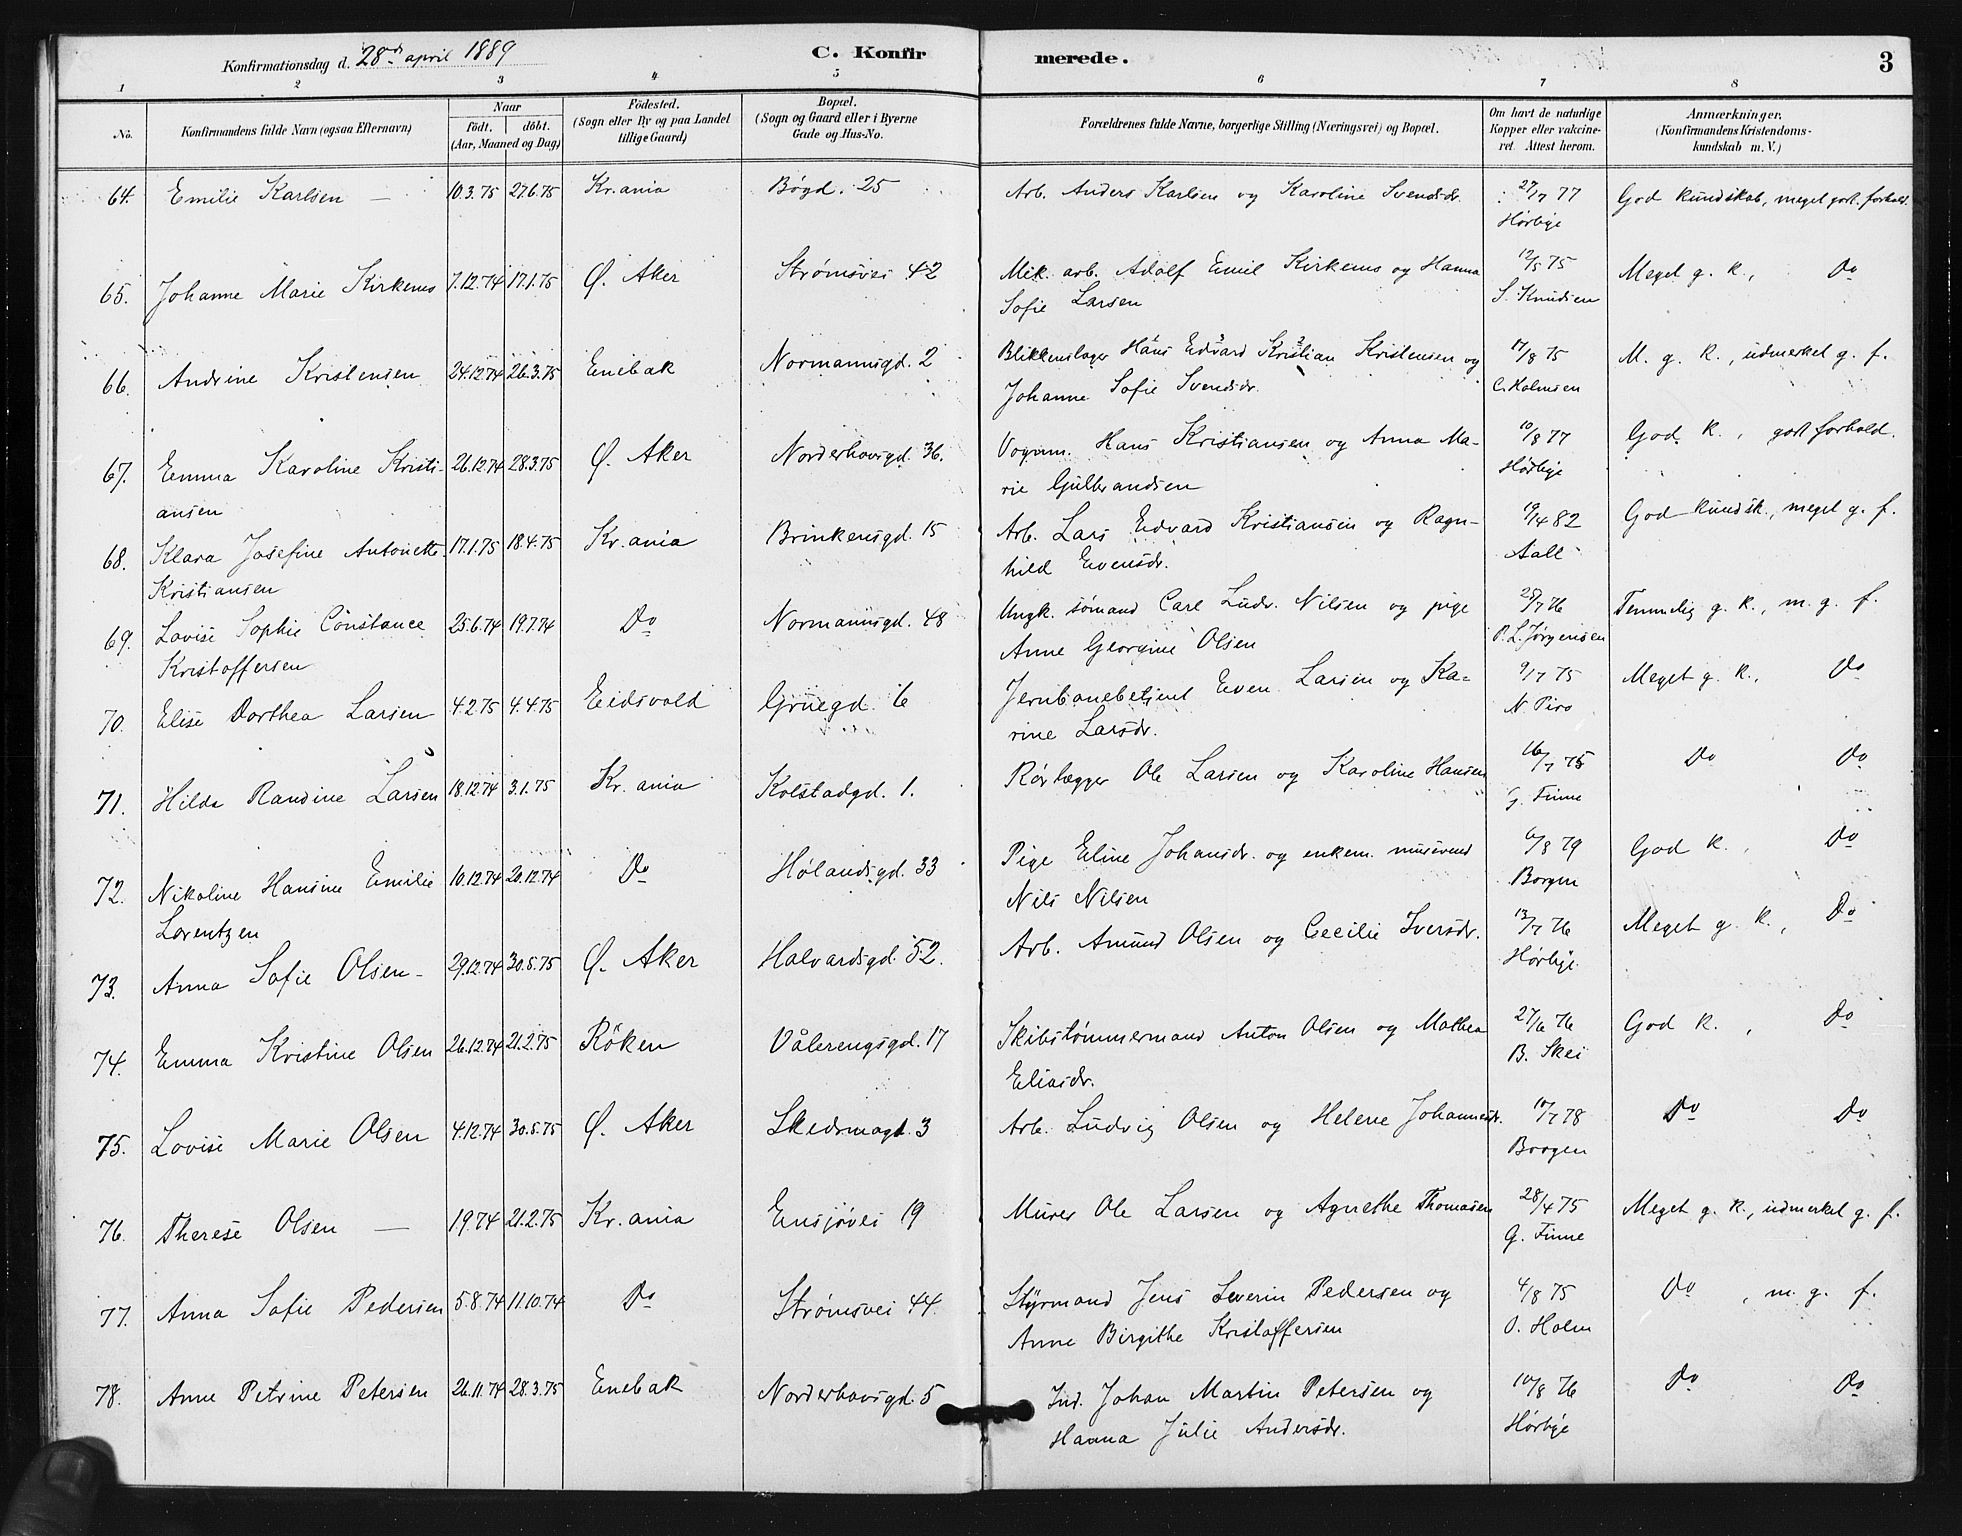 Konfirmationsdag d. 28de april 1889 C. Konfirmerede. 3
1 2 3 4 5 6 7 8
No. Konfirmandens fulde Navn (ogsaa Efternavn) Naar født. døbt. (Aar, Maaned og Dag) Fødested. (Sogn eller By og paa Landet tillige Gaard) Bopæl. (Sogn og Gaard eller i Byerne Gade og Hus-No. Forældrenes fulde Navne, borgerlige Stilling (Næringsvei) og Bopæl. Om havt de naturlige Kopper eller vakcineret. Attest herom. Anmærkninger. (Konfirmandens Kristendomskundskab m. V.)
64. Emilie Karlsen — 10.3.75 27.6.75 Kr.ania Bøgd. 25 Arb. Anders Karlsen og Karoline Svendsdr. 27/7 77 God kundskab, meget godt forhold.
Hørbye
65. Johanne Marie Kirkenes 7.12.74 17.1.75 Ø. Aker Strømsvei 42 Mek. arb. Adolf Emil Kirkenes og Hanna 12/5 75 Meget g. k., Do
Sofie Larsen S. Knudsen
66. Andrine Kristensen 24.12.74 26.3.75 Enebak Normannsgd. 2 Blikkenslager Hans Edvard Kristian Kristensen og 17/8 75 M. g. k., udmerket g. f.
Johanne Sofie Svendsdr. C. Holmsen
67. Emma Karoline Kristi- 26.12.74 28.3.75 Ø. Aker Norderhovsgd. 36. Vognm. Hans Kristiansen og Anna Ma- 10/8 77 God k., godt forhold.
ansen rie Gulbrandsen Hørbye
68. Klara Josefine Antonette 17.1.75 18.4.75 Kr.ania Brinkensgd. 15 Arb. Lars Edvard Kristiansen og Ragn- 19/4 82 God kundsk., meget g. f.
Kristiansen hild Evensdr. Aall
69. Lovise Sophie Constance 25.6.74 19.7.74 Do Normannsgd. 48 Ungk. sømand Carl Ludv. Nilsen og pige 28/7 76 Temmelig g. k., m. g. f.
Kristoffersen Anne Georgine Olsen P. L. Jørgensen
70. Elise Dorthea Larsen 4.2.75 4.4.75 Eidsvold Gruegd. 6 Jernbanebetjent Even Larsen og Ka- 9/7 75 Meget g. k., Do
rine Larsdr. N. Piro
71. Hilda Randine Larsen 18.12.74 3.1.75 Kr.ania Kolstadgd. 1. Rørlægger Ole Larsen og Karoline Hansen 16/7 75 Do Do
G. Finne
72. Nikoline Hansine Emilie 10.12.74 20.12.74 Do Hølandsgd. 33 Pige Eline Johansdr. og enkem. murersvend 6/8 79 God k., Do
Lorentzen Nils Nilsen Borgen
73. Anna Sofie Olsen - 29.12.74 30.5.75 Ø. Aker Halvardsgd. 52. Arb. Amund Olsen og Cecilie Iversdr. 13/7 76 Meget g. k., Do
Hørbye
74. Emma Kristine Olsen 26.12.74 21.2.75 Röken Vålerengsgd. 17 Skibstømmermand Anton Olsen og Mathea 27/6 76 God k., Do
Eliasdr. B. Skei
75. Lovise Marie Olsen 4.12.74 30.5.75 Ø. Aker Skedsmogt. 3 Arb. Ludvig Olsen og Helene Johannesdr. 10/7 78 Do Do
Borgen
76. Therese Olsen — 1.9.74 21.2.75 Kr.ania Ensjøvei 19 Murer Ole Larsen og Agnethe Thomasen 28/4 75 Meget g. k., udmerket g. f.
G. Finne
77. Anna Sofie Pedersen 5.8.74 11.10.74 Do Strømsvei 44. Styrmand Jens Severin Pedersen og 4/8 75 Do, m. g. f.
Anne Birgithe Kristoffersen O. Holm
78. Anne Petrine Petersen 26.11.74 28.3.75 Enebak Norderhovsgd. 5 Ind. Johan Martin Petersen og 10/8 76 Do Do
Hanna Julie Andersdr. Hørbye